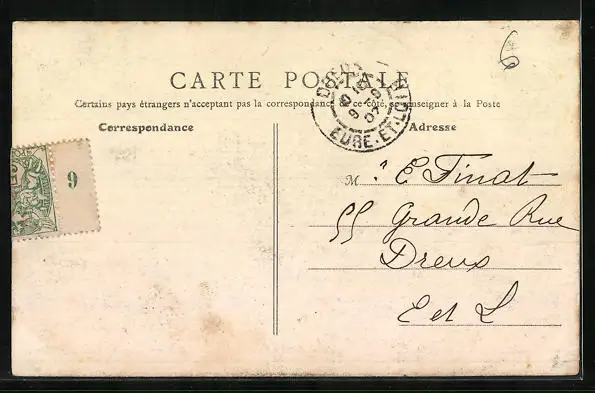 CARTE POSTALE
Certains pays étrangers n'acceptant pas la correspondance de ce côté, se renseigner à la Poste
Correspondance
Adresse
DREUX
EURE-ET-LOIR
M E Tinat
55 Grande Rue
Dreux
E et L
9
6